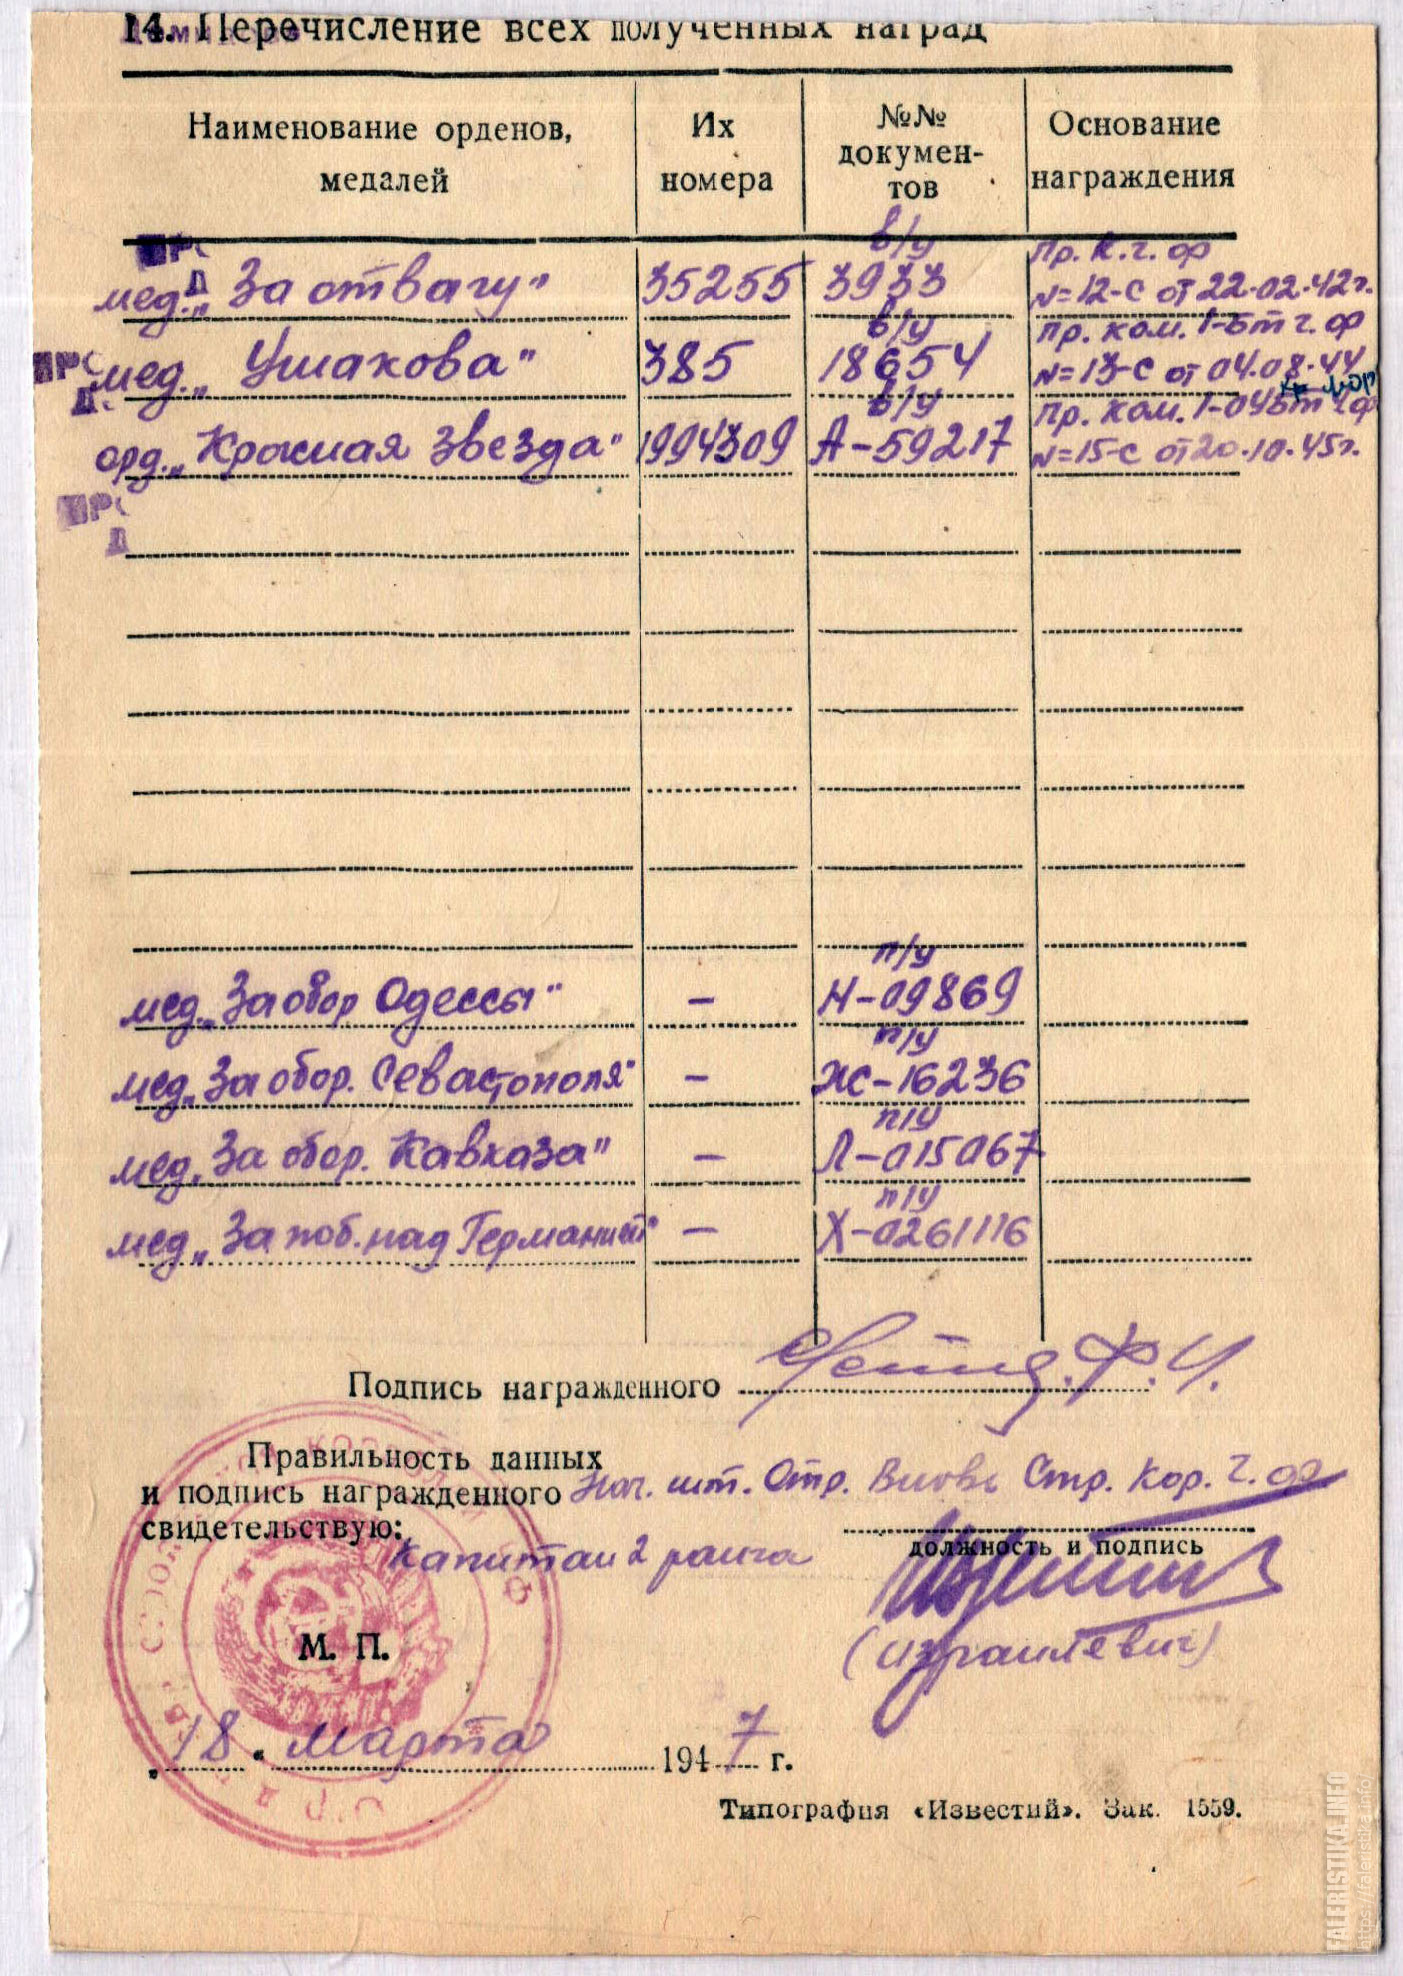 14. Перечисление всех полученных наград
Наименование орденов, медалей
Их номера
№№ документов
Основание награждения
в/у
Пр. К. Ч. Ф
мед. „За отвагу" 35255 3933 N=12-С от 22.02.42г.
в/у
Пр. ком. 1-БТК Ч. Ф
мед. „Ушакова" 385 18654 N=13-С от 04.08.44
в/у
Пр. ком.
орд. „Красная Звезда" 1994309 А-59217 N=15-С от 20.10.45г.
ПРС
Д
ПРС
Д
ПРС
Д
п/у
мед. „За обор Одессы" – Н-09869
п/у
мед. „За обор. Севастополя" – ЖС-16236
п/у
мед. „За обор. Кавказа" – Л-015067
п/у
мед. „За поб. над Германией" – Х-0261116
Подпись награжденного
Правильность данных
и подпись награжденного Нач. шт. Отр. Вновь Стр. Кор. Ч. Ф
свидетельствую:
Капитан 2 ранга
должность и подпись
(Израилевич)
М. П.
„18" марта 1947 г.
Типография «Известий». Зак. 1559.
FALERISTIKA.INFO
https://faleristika.info/